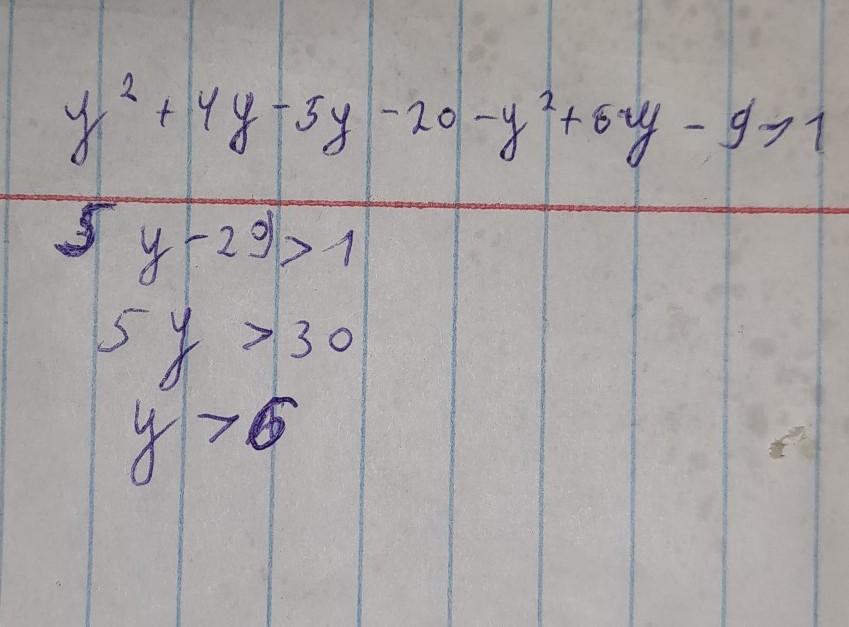 y² + 4y - 5y - 20 - y² + 6y - 9 > 1
5 y - 29 > 1
5 y > 30
y > 6